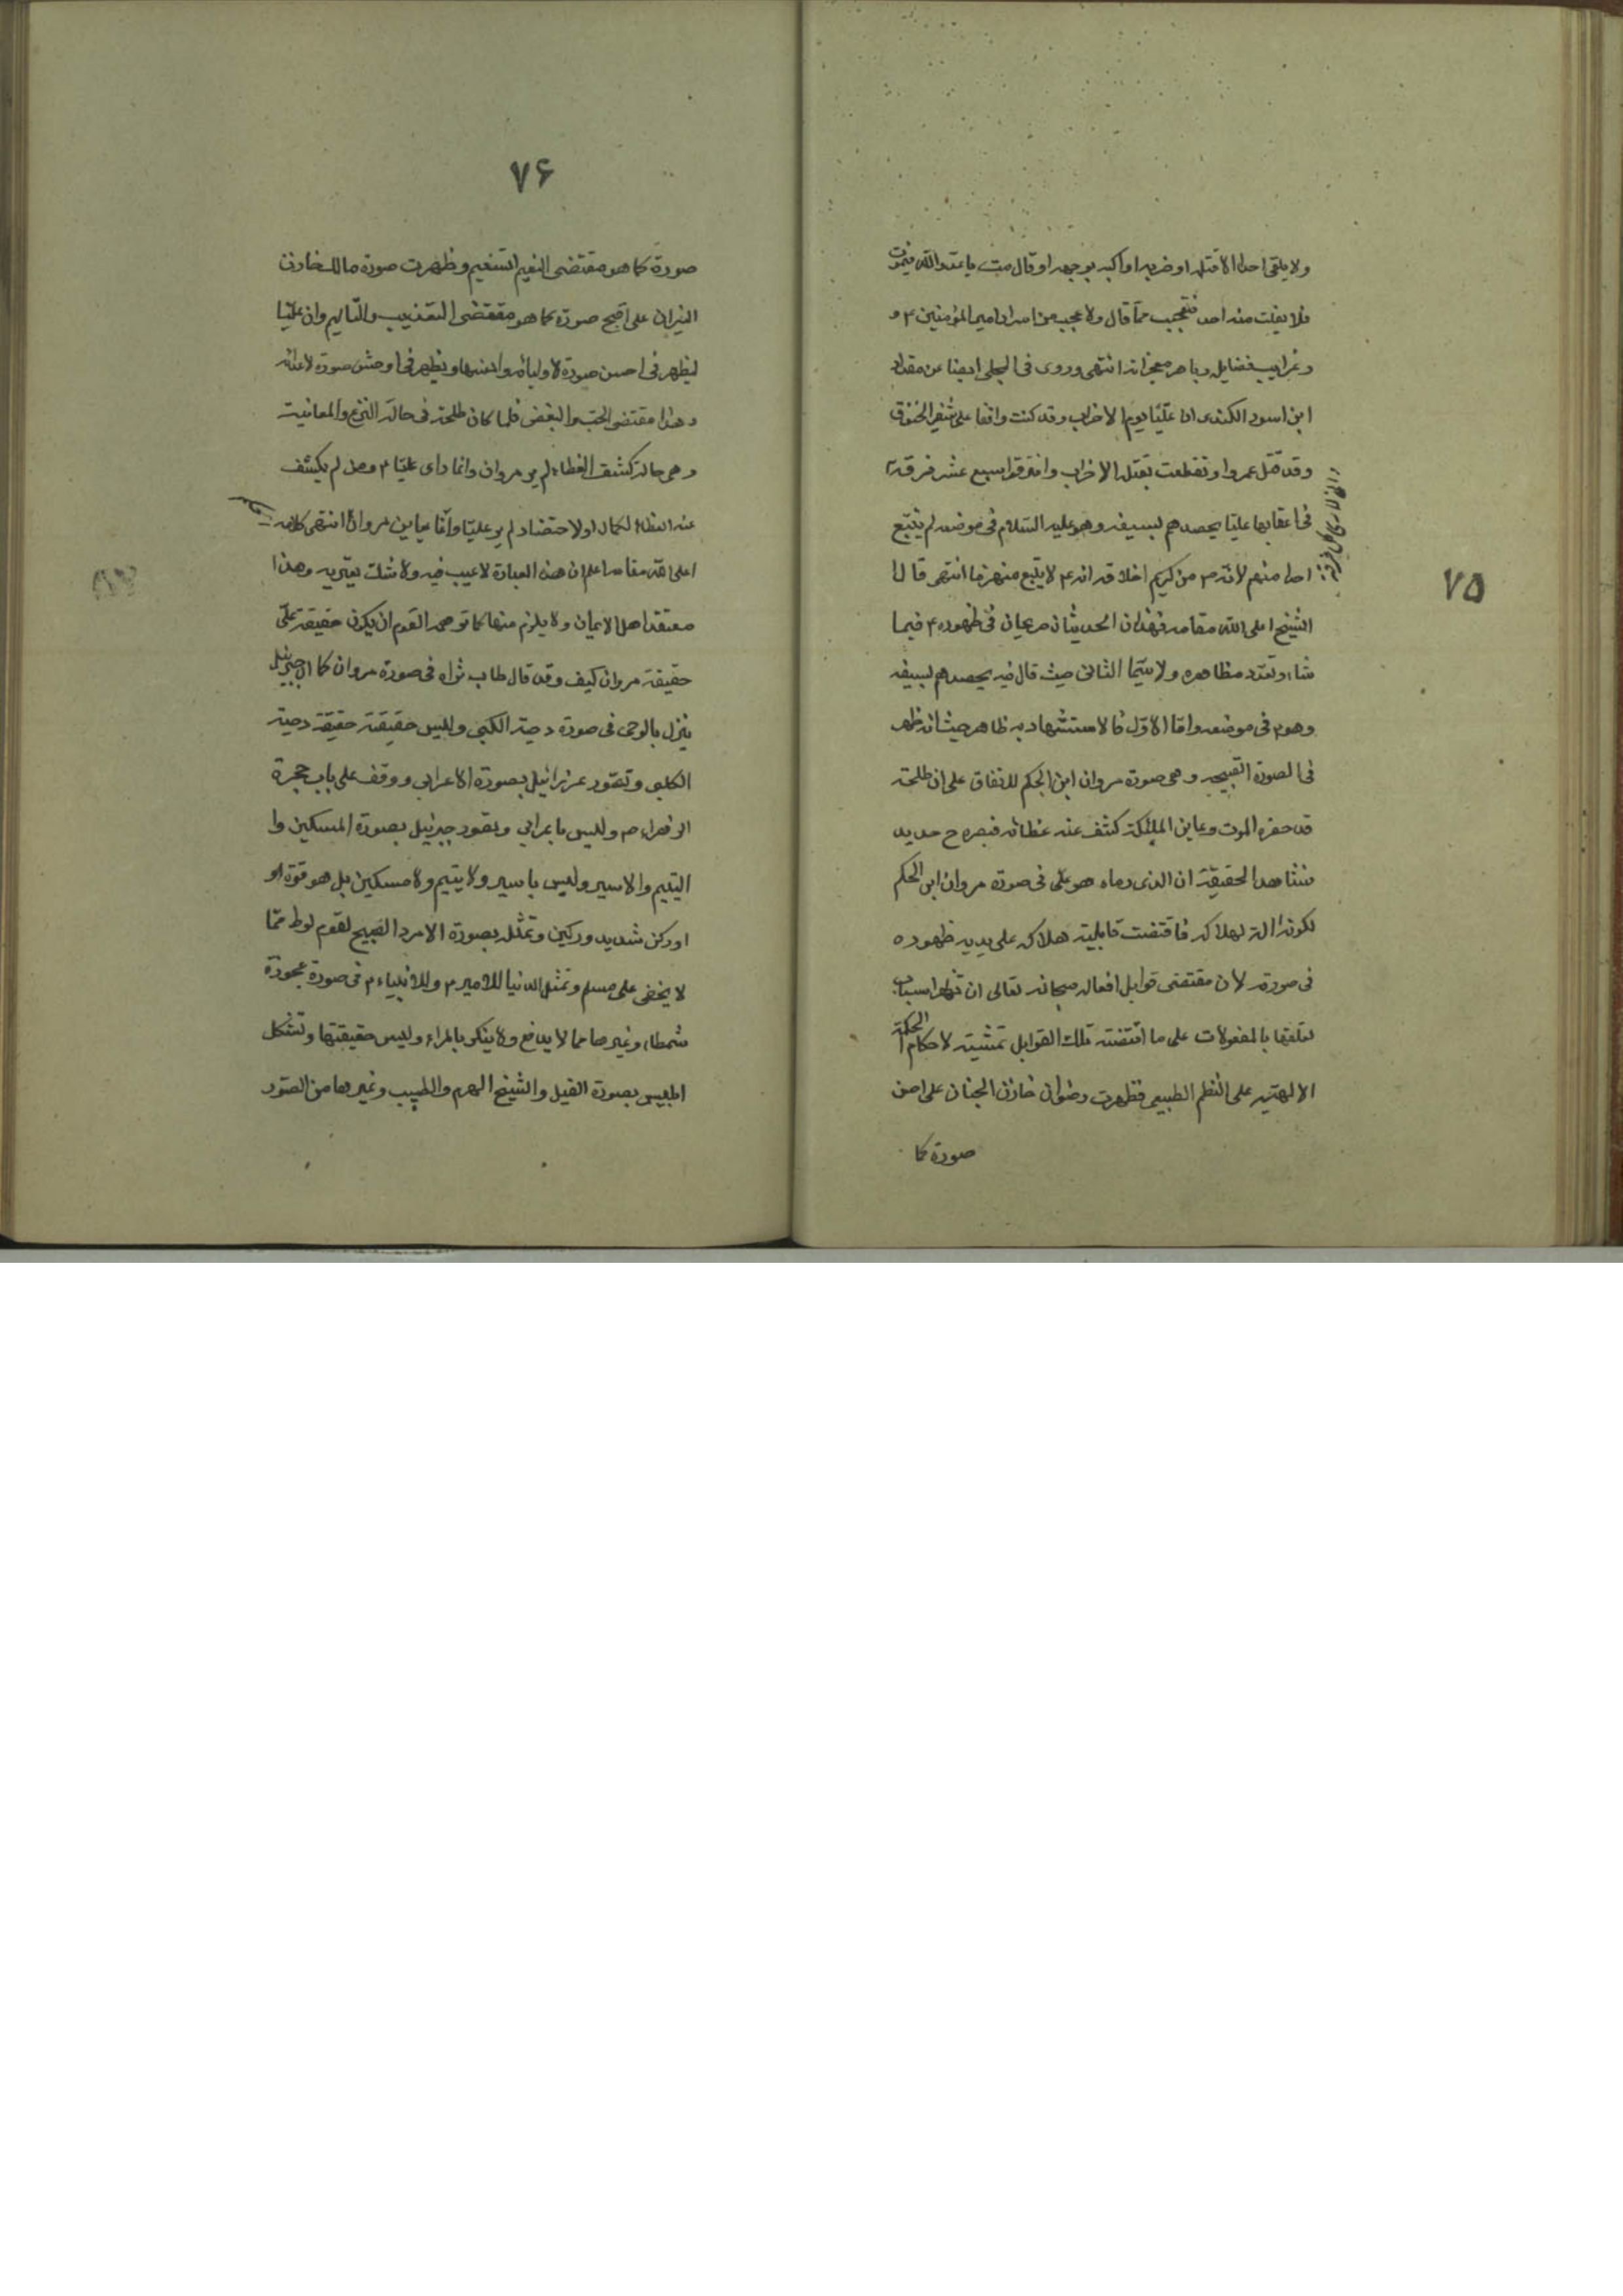 ٧٥
ولا يلقى احدا الا قتله او ضربه او اكبه بوجهه او قال مت يا عدو الله فيموت
فلا يفلت منه احد فتعجب مما قال ولا عجب من اسرار امير المؤمنين ع و
وغرايب فضايله وباهر معجزاته انتهى وروى فى المجلى ايضا عن مقداد
ابن اسود الكندى ان عليّا يوم الاحزاب وقد كنت واقفا على شفير الخندق
وقد قتل عمروا وتقطعت بقتله الاحزاب وافترقوا سبع عشر فرقة
فى اعقابها عليا يحصدهم بسيفه وهو عليه السّلام فى موضعه لم يتبع
احدا منهم لانه من كريم اخلاقه انه ع لا يتبع منهزما انتهى قال
الشيخ اعلى الله مقامه فهذان الحديثان صريحان فى ظهوره ع فيما
شاء وتعدد مظاهره ولا سيّما الثانى حيث قال فيه يحصدهم بسيفه
وهو فى موضعه وامّا الاوّل فالاستشهاد به ظاهر حيث انه ظهر
فى الصورة القبيحه وهى صورة مروان ابن الحكم للاتفاق على ان طلحة
قد حضره الموت وعاين الملئكة كشف عنه غطائه فبصره ح حديد
فشاهد الحقيقة ان الذى رماه هو على فى صورة مروان ابن الحكم
لكونه الة لهلاكه فاقتضت قابلية هلاكه على يديه ظهوره
فى صورته لان مقتضى قوابل افعاله سبحانه تعالى ان تظهر اسباب
تعلقها بالمفعولات على ما اقتضته تلك القوابل تمشية لاحكام الحكمة
الالهيّه على النظم الطبيعى فظهرت رضوان خازن الجنان على احسن
صورة كما
٧۶
صورة كما هو مقتضى النعيم التنعيم وظهرت صورة مالك خازن
النيران على اقبح صورة كما هو مقتضى التعذيب والتّاليم وان عليّا
ليظهر فى احسن صورة لاوليائه وانسها ويظهر فى اوحش صورة لاعدائه
وهذا مقتضى الحب والبغض فلما كان طلحة فى حالة النزع والمعاينة
وهى حالة كشف الغطاء لم ير مروان وانما راى عليّا ع ومن لم يكشف
عنه الغطاء لكمال او لاحتضار لم ير عليّا وانّما يعاين مروان انتهى كلامه
اعلى الله مقامه اعلم ان هذه العبارة لا عيب فيه ولا شك يعتريه وهذا
معتقد اهل الايمان ولا يلزم منها كما توهمه القوم ان يكون حقيقة علىّ
حقيقة مروان كيف وقد قال طاب ثراه فى صورة مروان كما ان جبرئيل
ينزل بالوحى فى صورة دحية الكلبى وليس حقيقته حقيقة دحية
الكلبى وتصوّر عزرائيل بصورة الاعرابى ووقف على باب حجرة
الزهراء ع وليس باعرابى وتصور جبرئيل بصورة المسكين وا
اليتيم والاسير وليس باسير ولا يتيم ولا مسكين بل هو قوة او
او ركن شديد وركين وتمثّله بصورة الامرد الصبيح لقوم لوط ممّا
لا يخفى على مسلم وتمثل الدنيا للامير ع وللانبياء ع فى صورة عجوزة
شمطاء وغيرها مما لا يدافع ولا ينكر بالمراء وليس حقيقتها وتشكل
ابليس بصورة الفيل والشيخ الهرم والطبيب وغيرها من الصّور